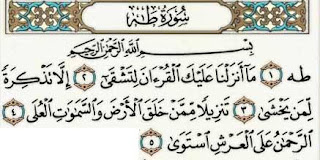 سُورَةُ طه
بِسْمِ اللَّهِ الرَّحْمَٰنِ الرَّحِيمِ
طه ١ مَا أَنزَلْنَا عَلَيْكَ الْقُرْءَانَ لِتَشْقَىٰ ٢ إِلَّا تَذْكِرَةً
لِّمَن يَخْشَىٰ ٣ تَنزِيلًا مِّمَّنْ خَلَقَ الْأَرْضَ وَالسَّمَٰوَٰتِ الْعُلَى ٤
الرَّحْمَٰنُ عَلَى الْعَرْشِ اسْتَوَىٰ ٥